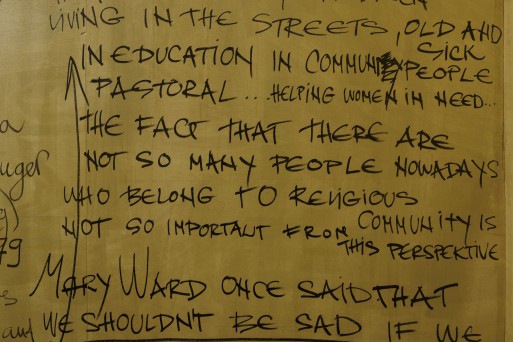 LIVING IN THE STREETS, OLD AND SICK
IN EDUCATION IN COMMUN PEOPLE
PASTORAL ... HELPING WOMEN IN NEED...
THE FACT THAT THERE ARE
NOT SO MANY PEOPLE NOWADAYS
WHO BELONG TO RELIGIOUS
NOT SO IMPORTANT FROM COMMUNITY IS
THIS PERSPEKTIVE
MARY WARD ONCE SAID THAT
WE SHOULDN'T BE SAD IF WE
a
uger
79
s
and